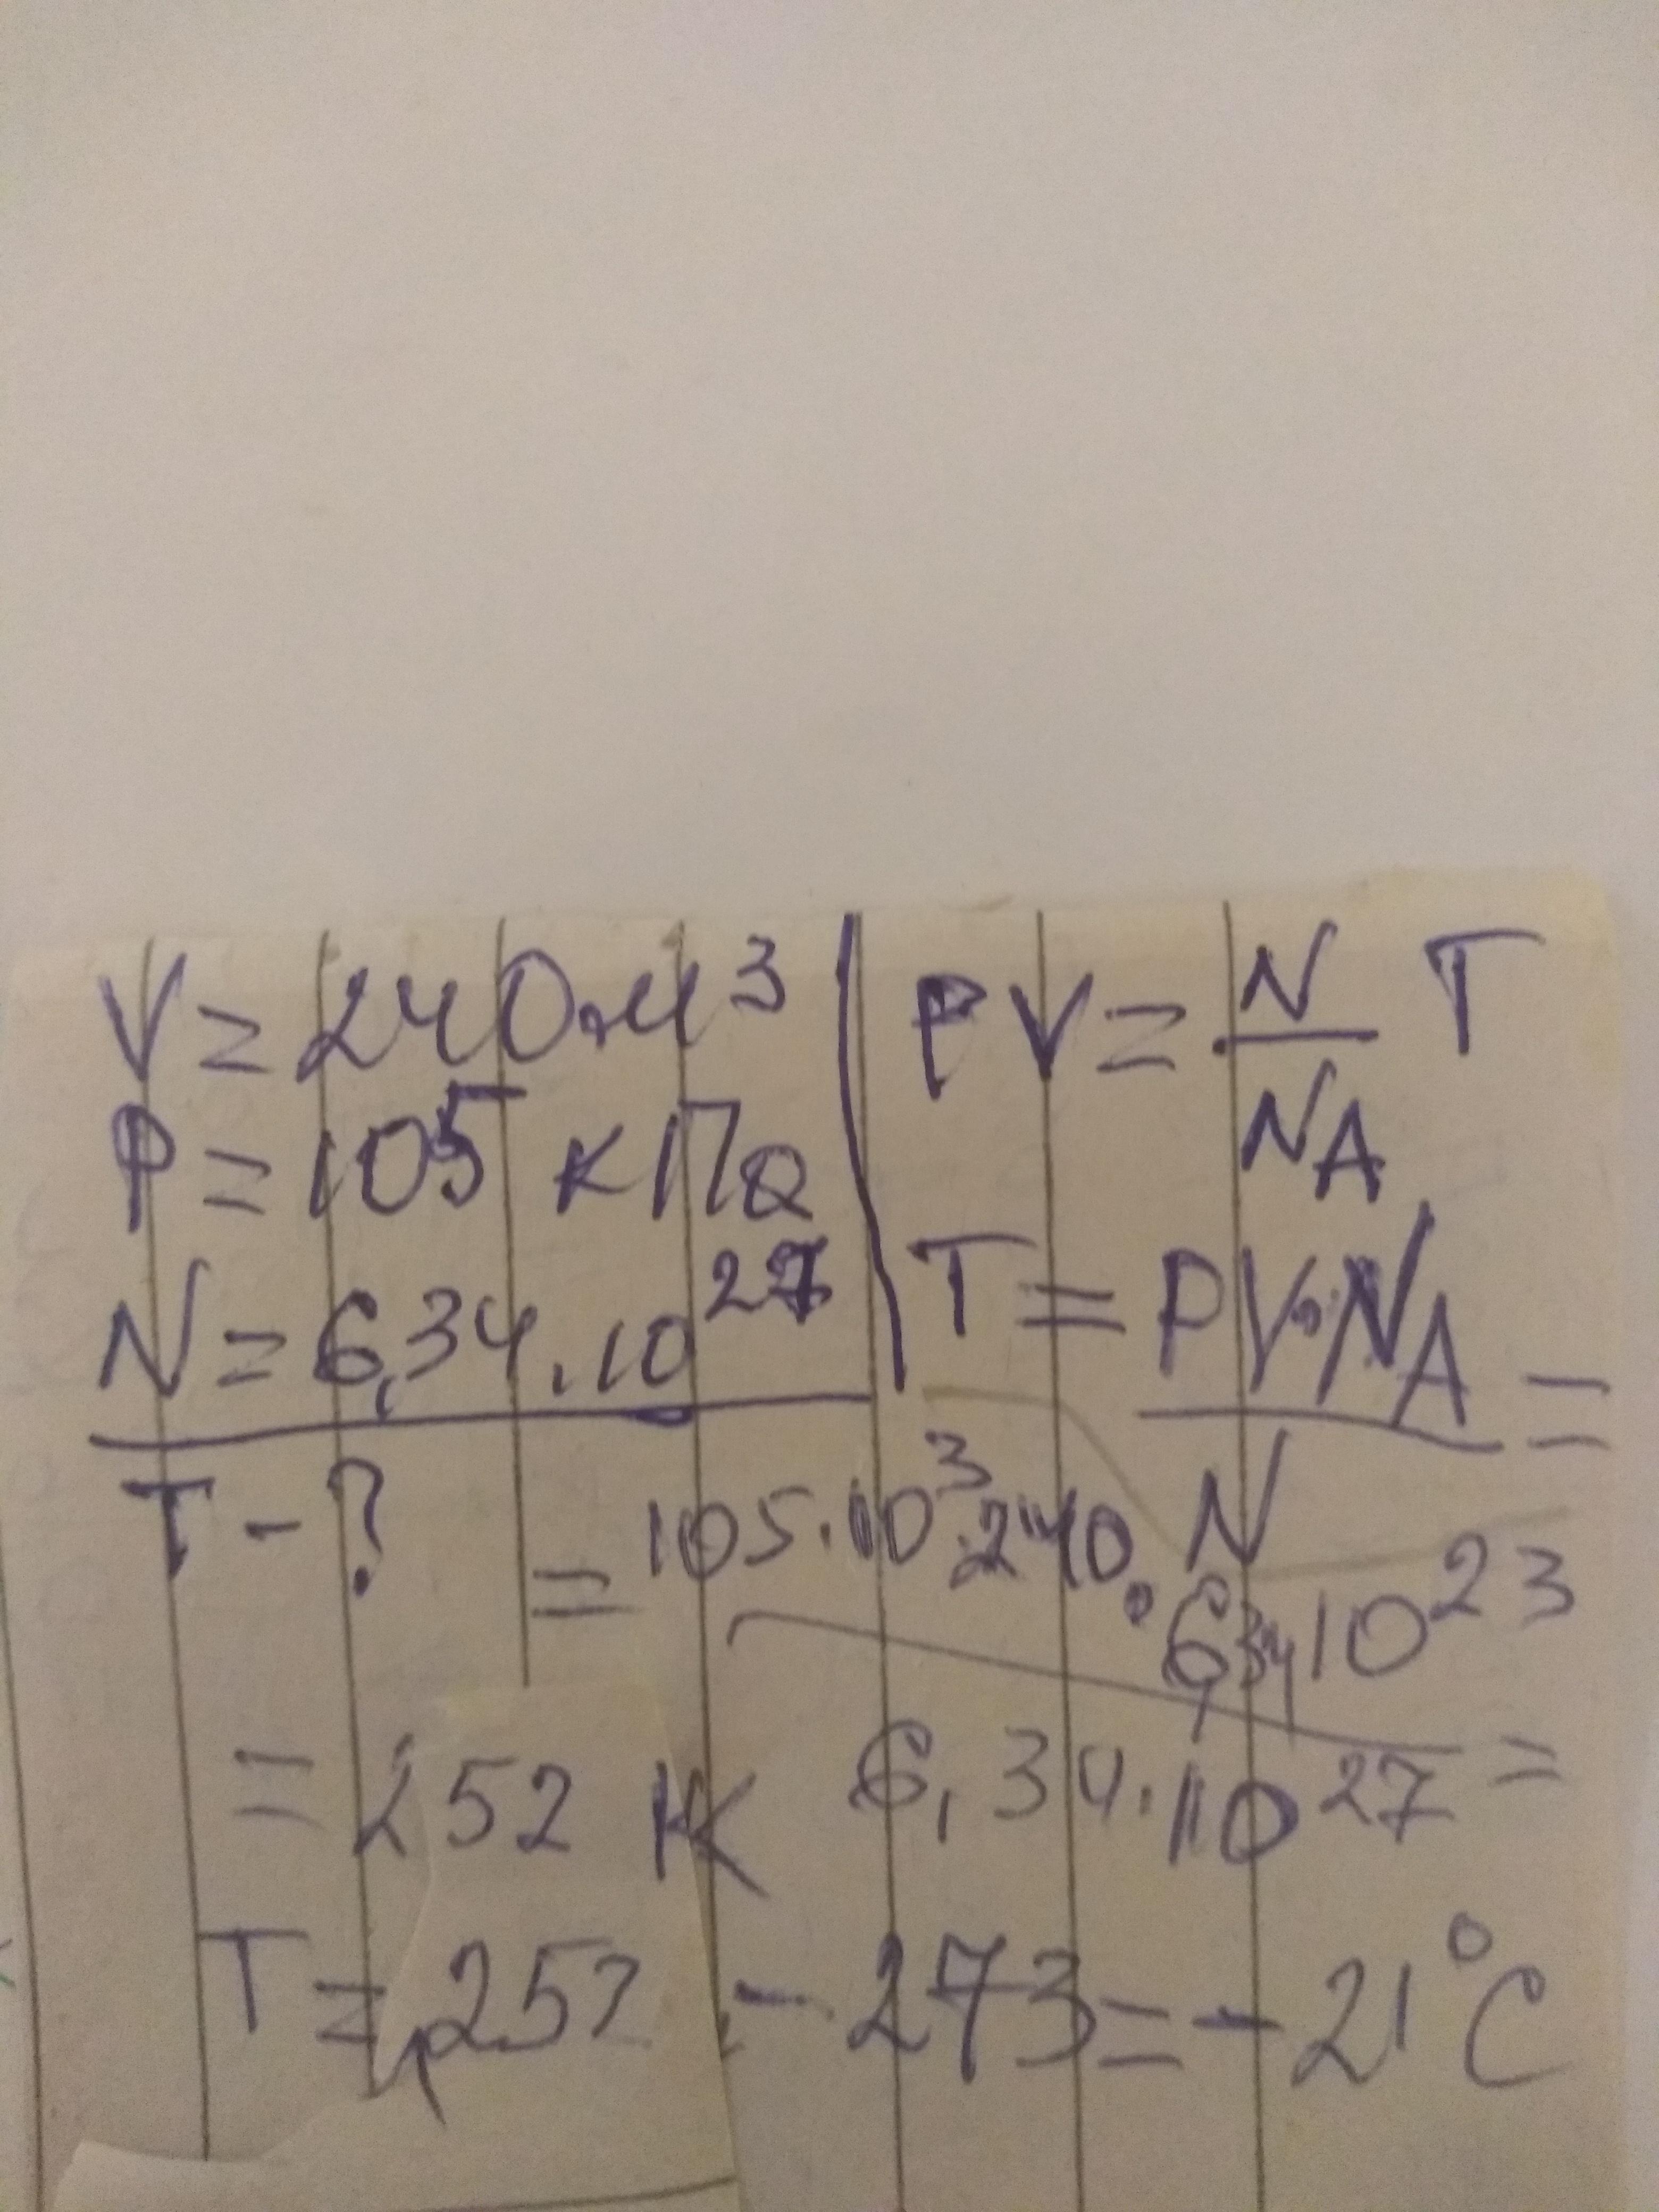 V = 240 м³
P = 105 кПа
N = 6,34 . 10²⁷
T - ?
PV = N/N_A T
T = PV·N_A / N =
= 105·10³·240·6,34 10²³ / 6,34·10²⁷ =
= 252 K
T = 252 - 273 = - 21°C